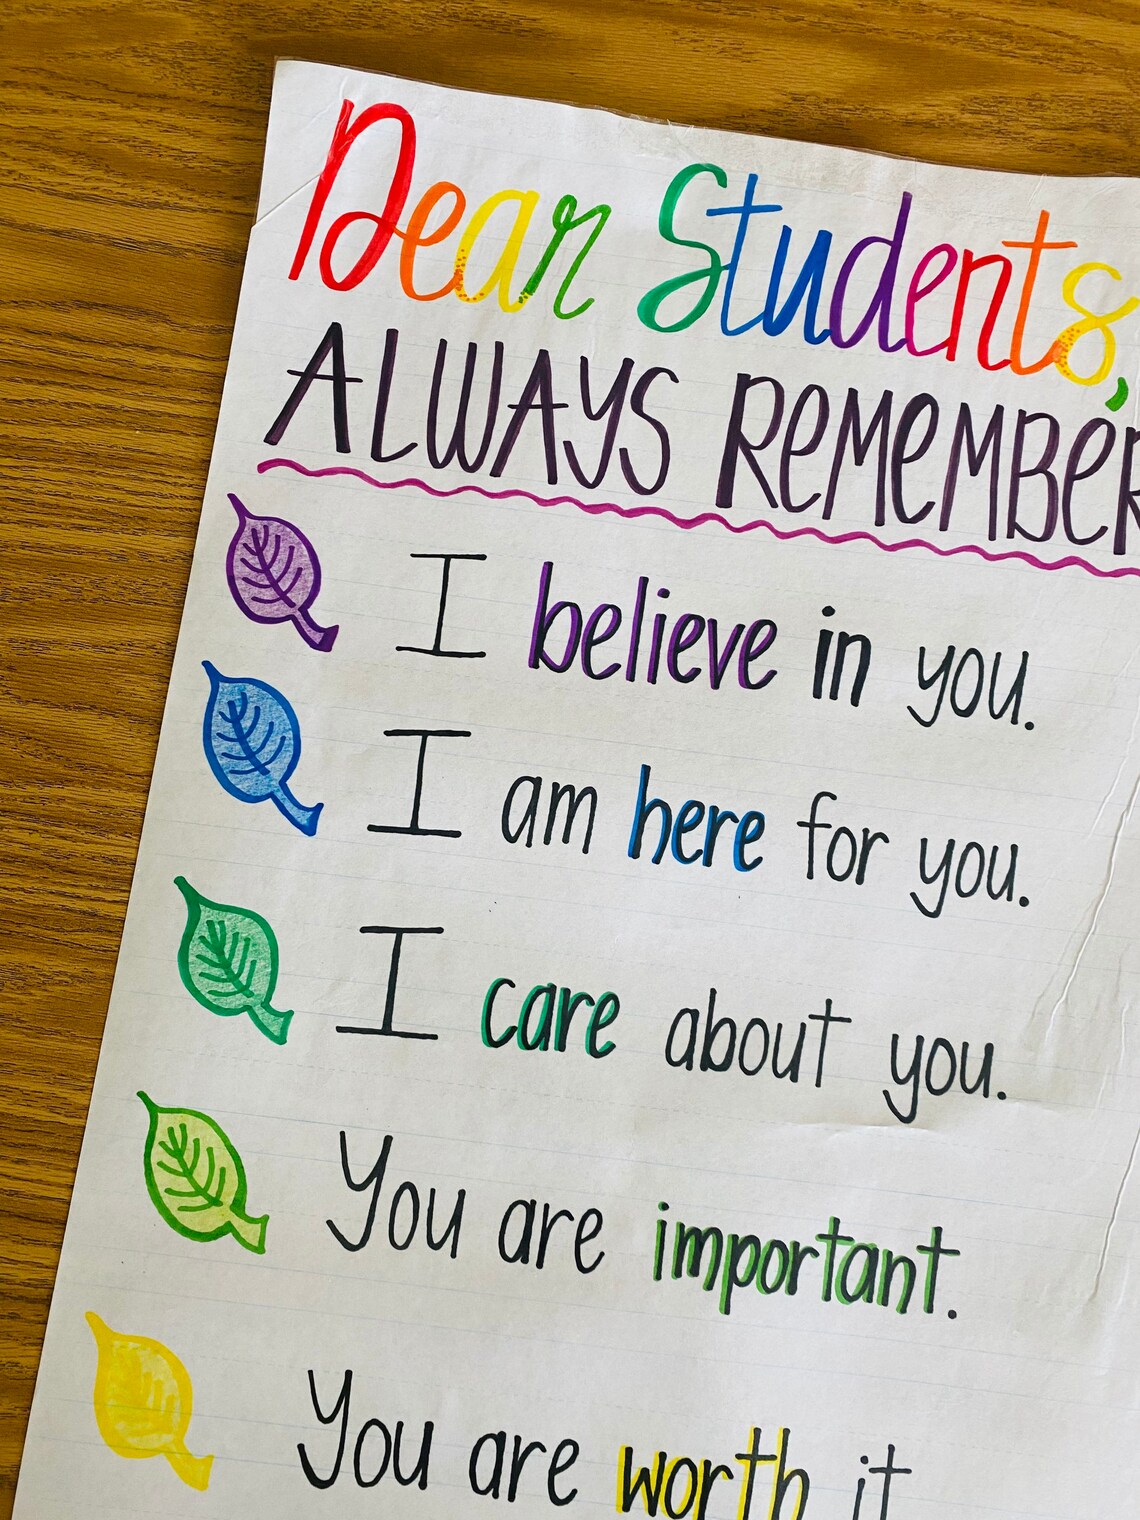 Dear Students,
ALWAYS REMEMBER
I believe in you.
I am here for you.
I care about you.
You are important.
You are worth it